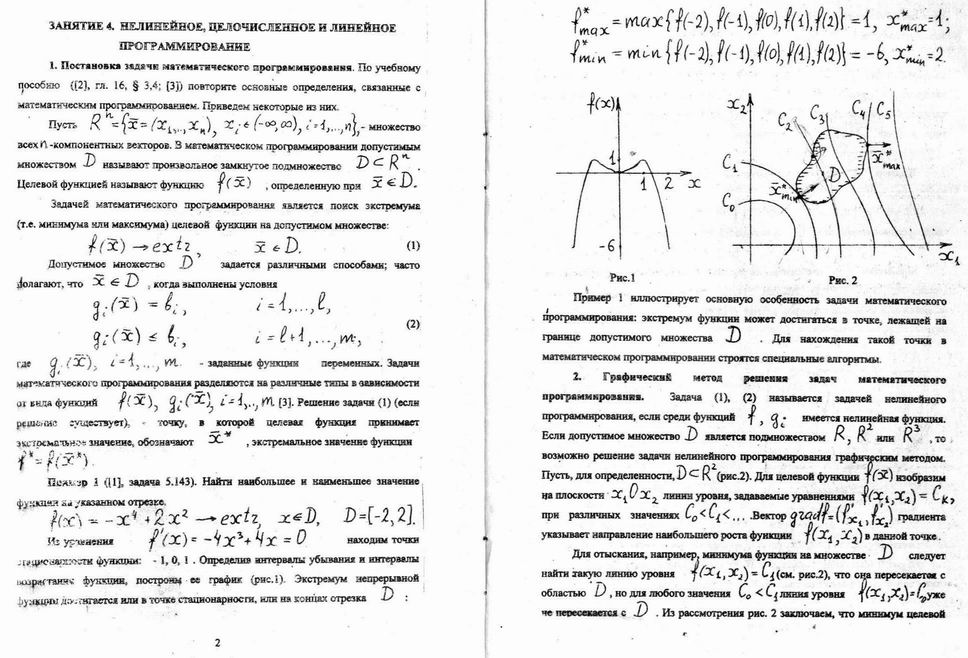 ЗАНЯТИЕ 4. НЕЛИНЕЙНОЕ, ЦЕЛОЧИСЛЕННОЕ И ЛИНЕЙНОЕ
ПРОГРАММИРОВАНИЕ
1. Постановка задачи математического программирования. По учебному
пособию ([2], гл. 16, § 3,4; [3]) повторите основные определения, связанные с
математическим программированием. Приведем некоторые из них.
Пусть Rⁿ={x̄=(x₁,...,xₙ), xᵢ∈(-∞,∞), i=1,...,n},- множество
всех n -компонентных векторов. В математическом программировании допустимым
множеством D называют произвольное замкнутое подмножество D⊂Rⁿ
Целевой функцией называют функцию f(x̄) , определенную при x̄∈D.
Задачей математического программирования является поиск экстремума
(т.е. минимума или максимума) целевой функции на допустимом множестве:
f(x̄) → extr, x̄∈D. (1)
Допустимое множество D задается различными способами; часто
полагают, что x̄∈D , когда выполнены условия
gᵢ(x̄) = bᵢ, i=1,...,l,
gᵢ(x̄) ≤ bᵢ, i=l+1,...,m, (2)
где gᵢ(x̄), i=1,...,m - заданные функции переменных. Задачи
математического программирования разделяются на различные типы в зависимости
от вида функций f(x̄), gᵢ(x̄), i=1,..,m [3]. Решение задачи (1) (если
решение существует), - точку, в которой целевая функция принимает
экстремальное значение, обозначают x̄* , экстремальное значение функции
f*=f(x̄*).
Пример 1 ([1], задача 5.143). Найти наибольшее и наименьшее значение
функции на указанном отрезке.
f(x) = -x⁴+2x² → extr, x∈D, D=[-2,2].
Из уравнения f'(x) = -4x³+4x=0 находим точки
стационарности функции: - 1, 0, 1 . Определив интервалы убывания и интервалы
возрастания функции, построим ее график (рис.1). Экстремум непрерывной
функции достигается или в точке стационарности, или на концах отрезка D :
2
f*max = max{f(-2),f(-1),f(0),f(1),f(2)}=1, x*max=1;
f*min = min{f(-2),f(-1),f(0),f(1),f(2)}=-6, x*min=2.
f(x)
1
1 2 x
-6
x₂
C₂ C₃ C₄ C₅
C₁
C₀
x̄*max
x̄*min
D
x₁
Рис.1 Рис. 2
Пример 1 иллюстрирует основную особенность задачи математического
программирования: экстремум функции может достигаться в точке, лежащей на
границе допустимого множества D . Для нахождения такой точки в
математическом программировании строятся специальные алгоритмы.
2. Графический метод решения задач математического
программирования. Задача (1), (2) называется задачей нелинейного
программирования, если среди функций f, gᵢ имеется нелинейная функция.
Если допустимое множество D является подмножеством R, R² или R³ , то
возможно решение задачи нелинейного программирования графическим методом.
Пусть, для определенности, D⊂R² (рис.2). Для целевой функции f(x̄) изобразим
на плоскости x₁Ox₂ линии уровня, задаваемые уравнениями f(x₁,x₂)=Cₖ,
при различных значениях C₀<C₁<... .Вектор gradf=(f'x₁,f'x₂) градиента
указывает направление наибольшего роста функции f(x₁,x₂) в данной точке.
Для отыскания, например, минимума функции на множестве D следует
найти такую линию уровня f(x₁,x₂)=C₁ (см. рис.2), что она пересекается с
областью D , но для любого значения C₀<C₁ линия уровня f(x₁,x₂)=C₀ уже
не пересекается с D . Из рассмотрения рис. 2 заключаем, что минимум целевой